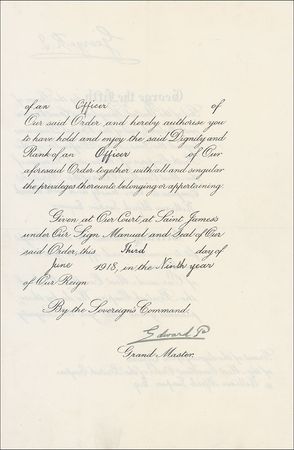 of an Officer of
Our said Order and hereby authorise you
to have hold and enjoy the said Dignity and
Rank of an Officer of Our
aforesaid Order together with all and singular
the privileges thereunto belonging or appertaining.
Given at Our Court at Saint James's
under Our Sign Manual and Seal of Our
said Order, this Third day of
June 1918, in the Ninth year
of Our Reign
By the Sovereign's Command.
Edward P
Grand Master.